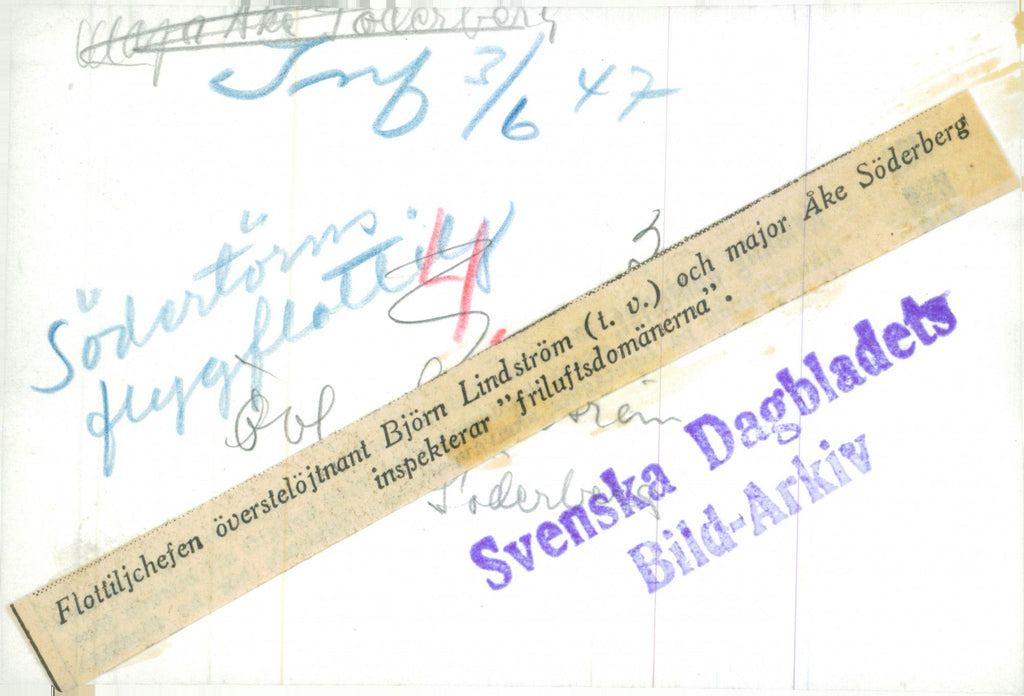 Åke Söderberg
Inf 3/6 47
Södertörns
flygflottilj
4.
3
Flottiljchefen överstelöjtnant Björn Lindström (t. v.) och major Åke Söderberg
inspekterar "friluftsdomänerna".
Övl
Söderberg
Svenska Dagbladets
Bild-Arkiv